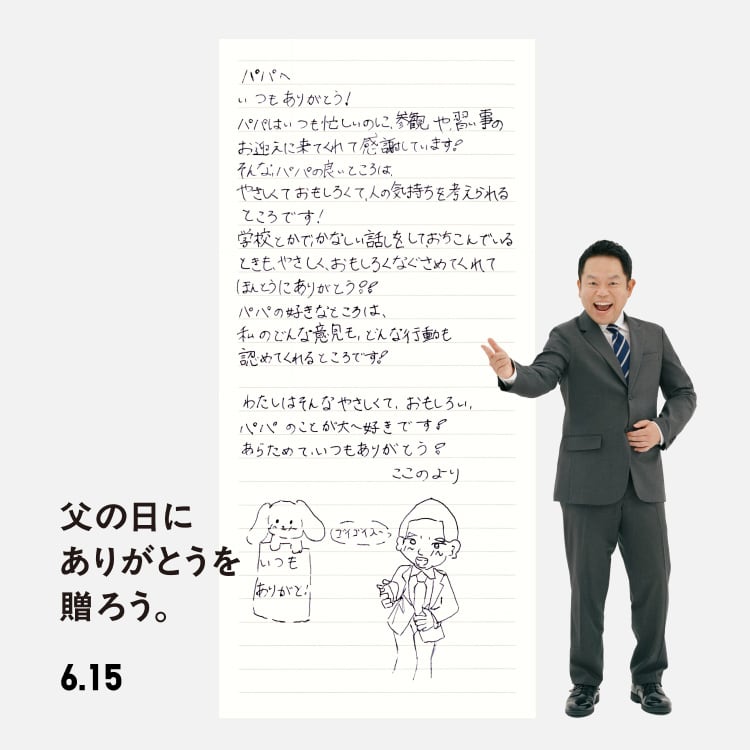 パパへ
いつもありがとう!
パパはいつも忙しいのに、参観や、習い事の
お迎えに来てくれて感謝しています!
そんなパパの良いところは、
やさしくておもしろくて、人の気持ちを考えられる
ところです!
学校とかで、かなしい話しをしておちこんでいる
ときも、やさしく、おもしろくなぐさめてくれて
ほんとうにありがとう!!
パパの好きなところは、
私のどんな意見も、どんな行動も
認めてくれるところです!
わたしはそんなやさしくて、おもしろい、
パパのことが大好きです!
あらためて、いつもありがとう!
ここのより
ゴイゴイスー
いつも
ありがと!
父の日に
ありがとうを
贈ろう。
6.15